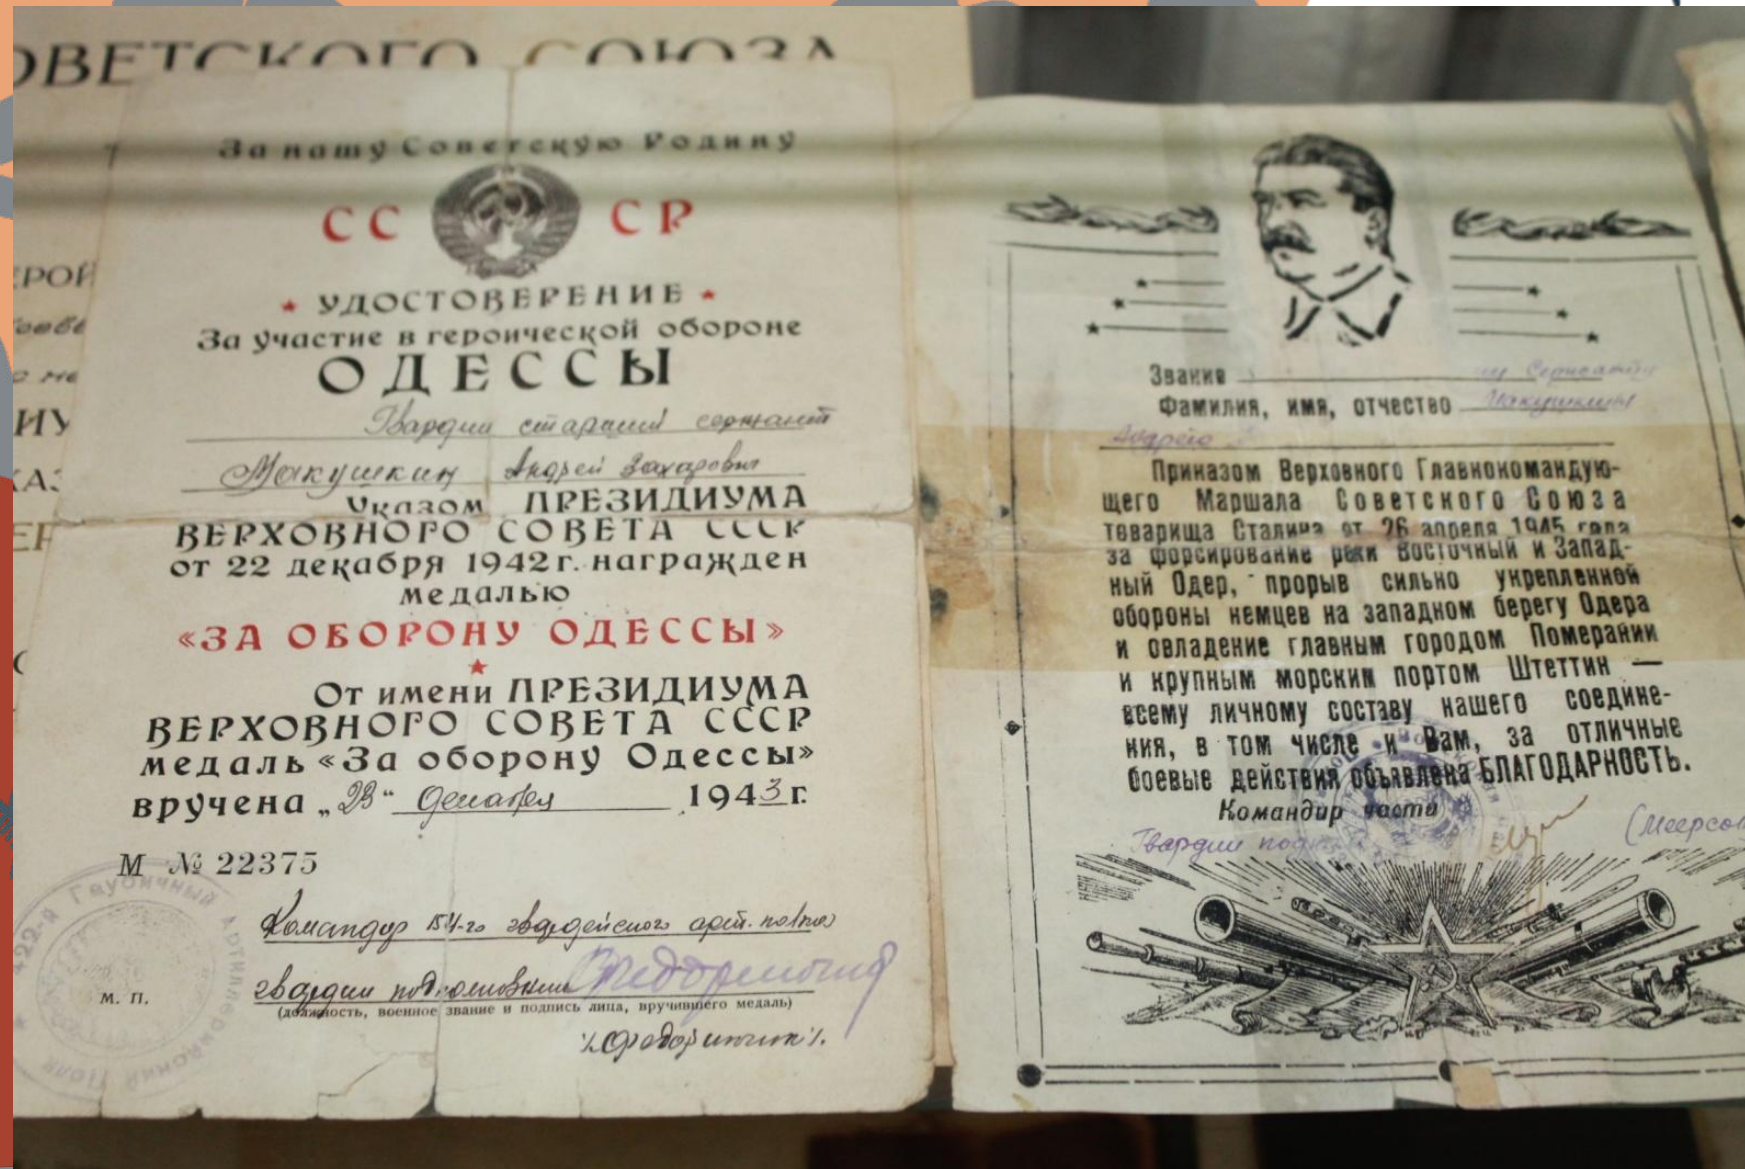 ОВЕТСКОГО СОЮЗА
За нашу Советскую Родину
СС СР
УДОСТОВЕРЕНИЕ
За участие в героической обороне
ОДЕССЫ
Гвардии старший сержант
Макушкин Андрей Захарович
Указом ПРЕЗИДИУМА
ВЕРХОВНОГО СОВЕТА СССР
от 22 декабря 1942 г. награжден
медалью
«ЗА ОБОРОНУ ОДЕССЫ»
От имени ПРЕЗИДИУМА
ВЕРХОВНОГО СОВЕТА СССР
медаль «За оборону Одессы»
вручена „23“ декабря 1943 г.
М № 22375
Командир 154-го гвардейского арт. полка
гвардии подполковник
м. п.
(должность, военное звание и подпись лица, вручившего медаль)
422-й Гаубичный Артиллерийский Полк
Звание му Сержанту
Фамилия, имя, отчество Макушкину
Андрею
Приказом Верховного Главнокомандую-
щего Маршала Советского Союза
товарища Сталина от 26 апреля 1945 года
за форсирование реки Восточный и Запад-
ный Одер, прорыв сильно укрепленной
обороны немцев на западном берегу Одера
и овладение главным городом Померании
и крупным морским портом Штеттин —
всему личному составу нашего соедине-
ния, в том числе и Вам, за отличные
боевые действия объявлена БЛАГОДАРНОСТЬ.
Командир части
Гвардии